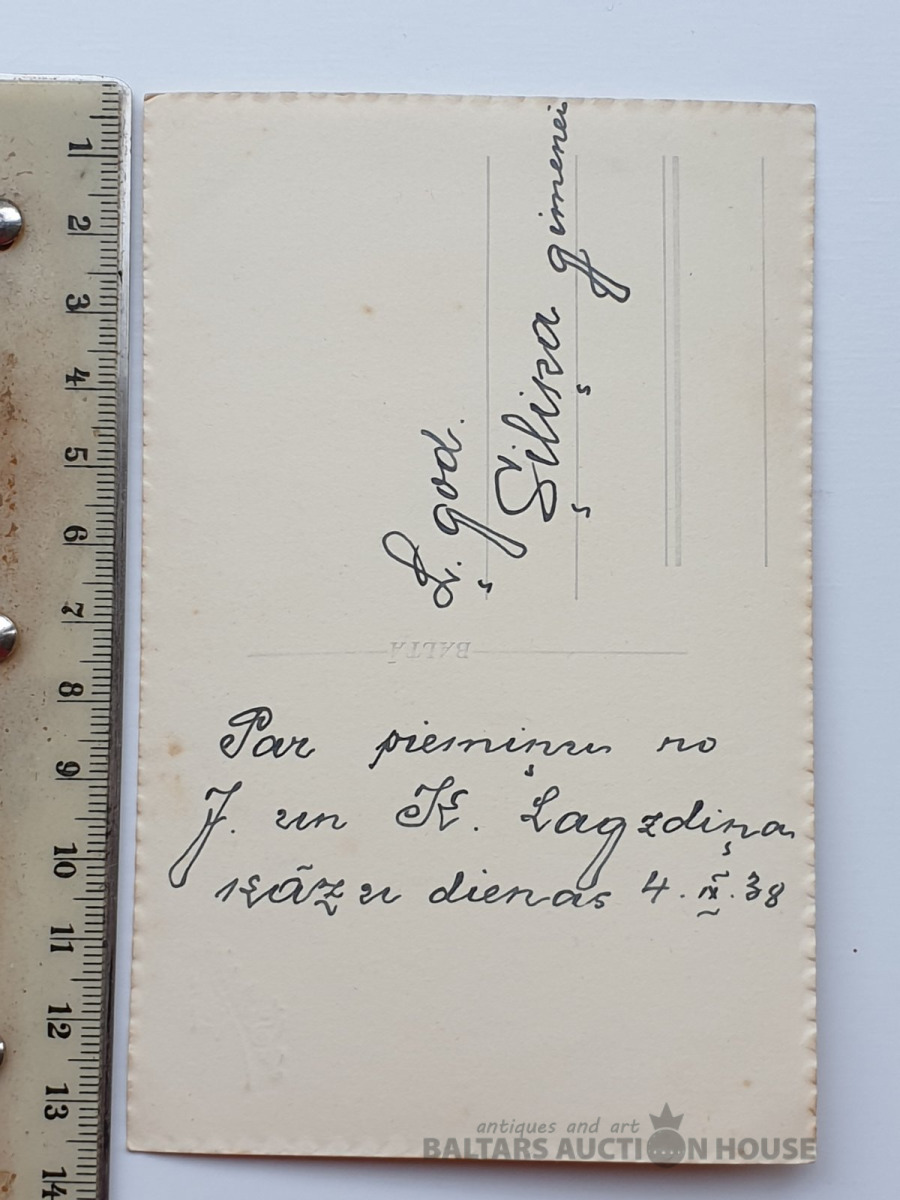 Ļ. god.
Siliņa ģimenei
BALTĀ
Par piemiņu no
J. un K. Lagzdiņa
kāzu dienas 4. IX. 38
1
2
3
4
5
6
7
8
9
10
11
12
13
14
antiques and art
BALTARS AUCTION HOUSE